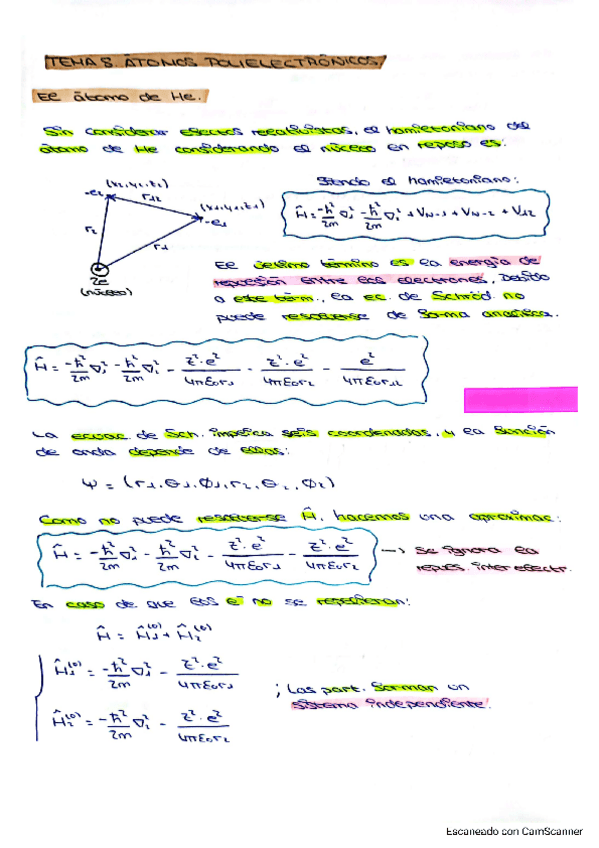 TEMA 8. ÁTOMOS POLIELECTRÓNICOS
El átomo de He.
Sin considerar efectos relativistas, el hamiltoniano del
átomo de He considerando el núcleo en reposo es:
Siendo el hamiltoniano:
(x₂,y₂,z₂)
-e₂
r₁₂
(x₁,y₁,z₁)
-e₁
r₂
r₁
Ze
(núcleo)
Ĥ = -ħ²/2m ∇₁² -ħ²/2m ∇₂² + V_N-1 + V_N-2 + V₁₂
El último término es la energía de
repulsión entre los electrones. Debido
a este térm., la ec. de Schröd. no
puede resolverse de forma analítica.
Ĥ = -ħ²/2m ∇₁² -ħ²/2m ∇₂² - Z²·e²/4πε₀r₁ - Z²·e²/4πε₀r₂ - e²/4πε₀r₁₂
La ecuac. de Sch. implica seis coordenadas, y la función
de onda depende de ellas:
Ψ = (r₁, θ₁, ϕ₁, r₂, θ₂, ϕ₂)
Como no puede resolverse Ĥ, hacemos una aproximac:
Ĥ = -ħ²/2m ∇₁² - ħ²/2m ∇₂² - Z²·e²/4πε₀r₁ - Z²·e²/4πε₀r₂ → Se ignora la
repuls. interelectr.
En caso de que los e⁻ no se repelieran:
Ĥ = Ĥ₁⁽⁰⁾ + Ĥ₂⁽⁰⁾
Ĥ₁⁽⁰⁾ = -ħ²/2m ∇₁² - Z²·e²/4πε₀r₁
; Las part. forman un
sistema independiente.
Ĥ₂⁽⁰⁾ = -ħ²/2m ∇₂² - Z²·e²/4πε₀r₂
Escaneado con CamScanner